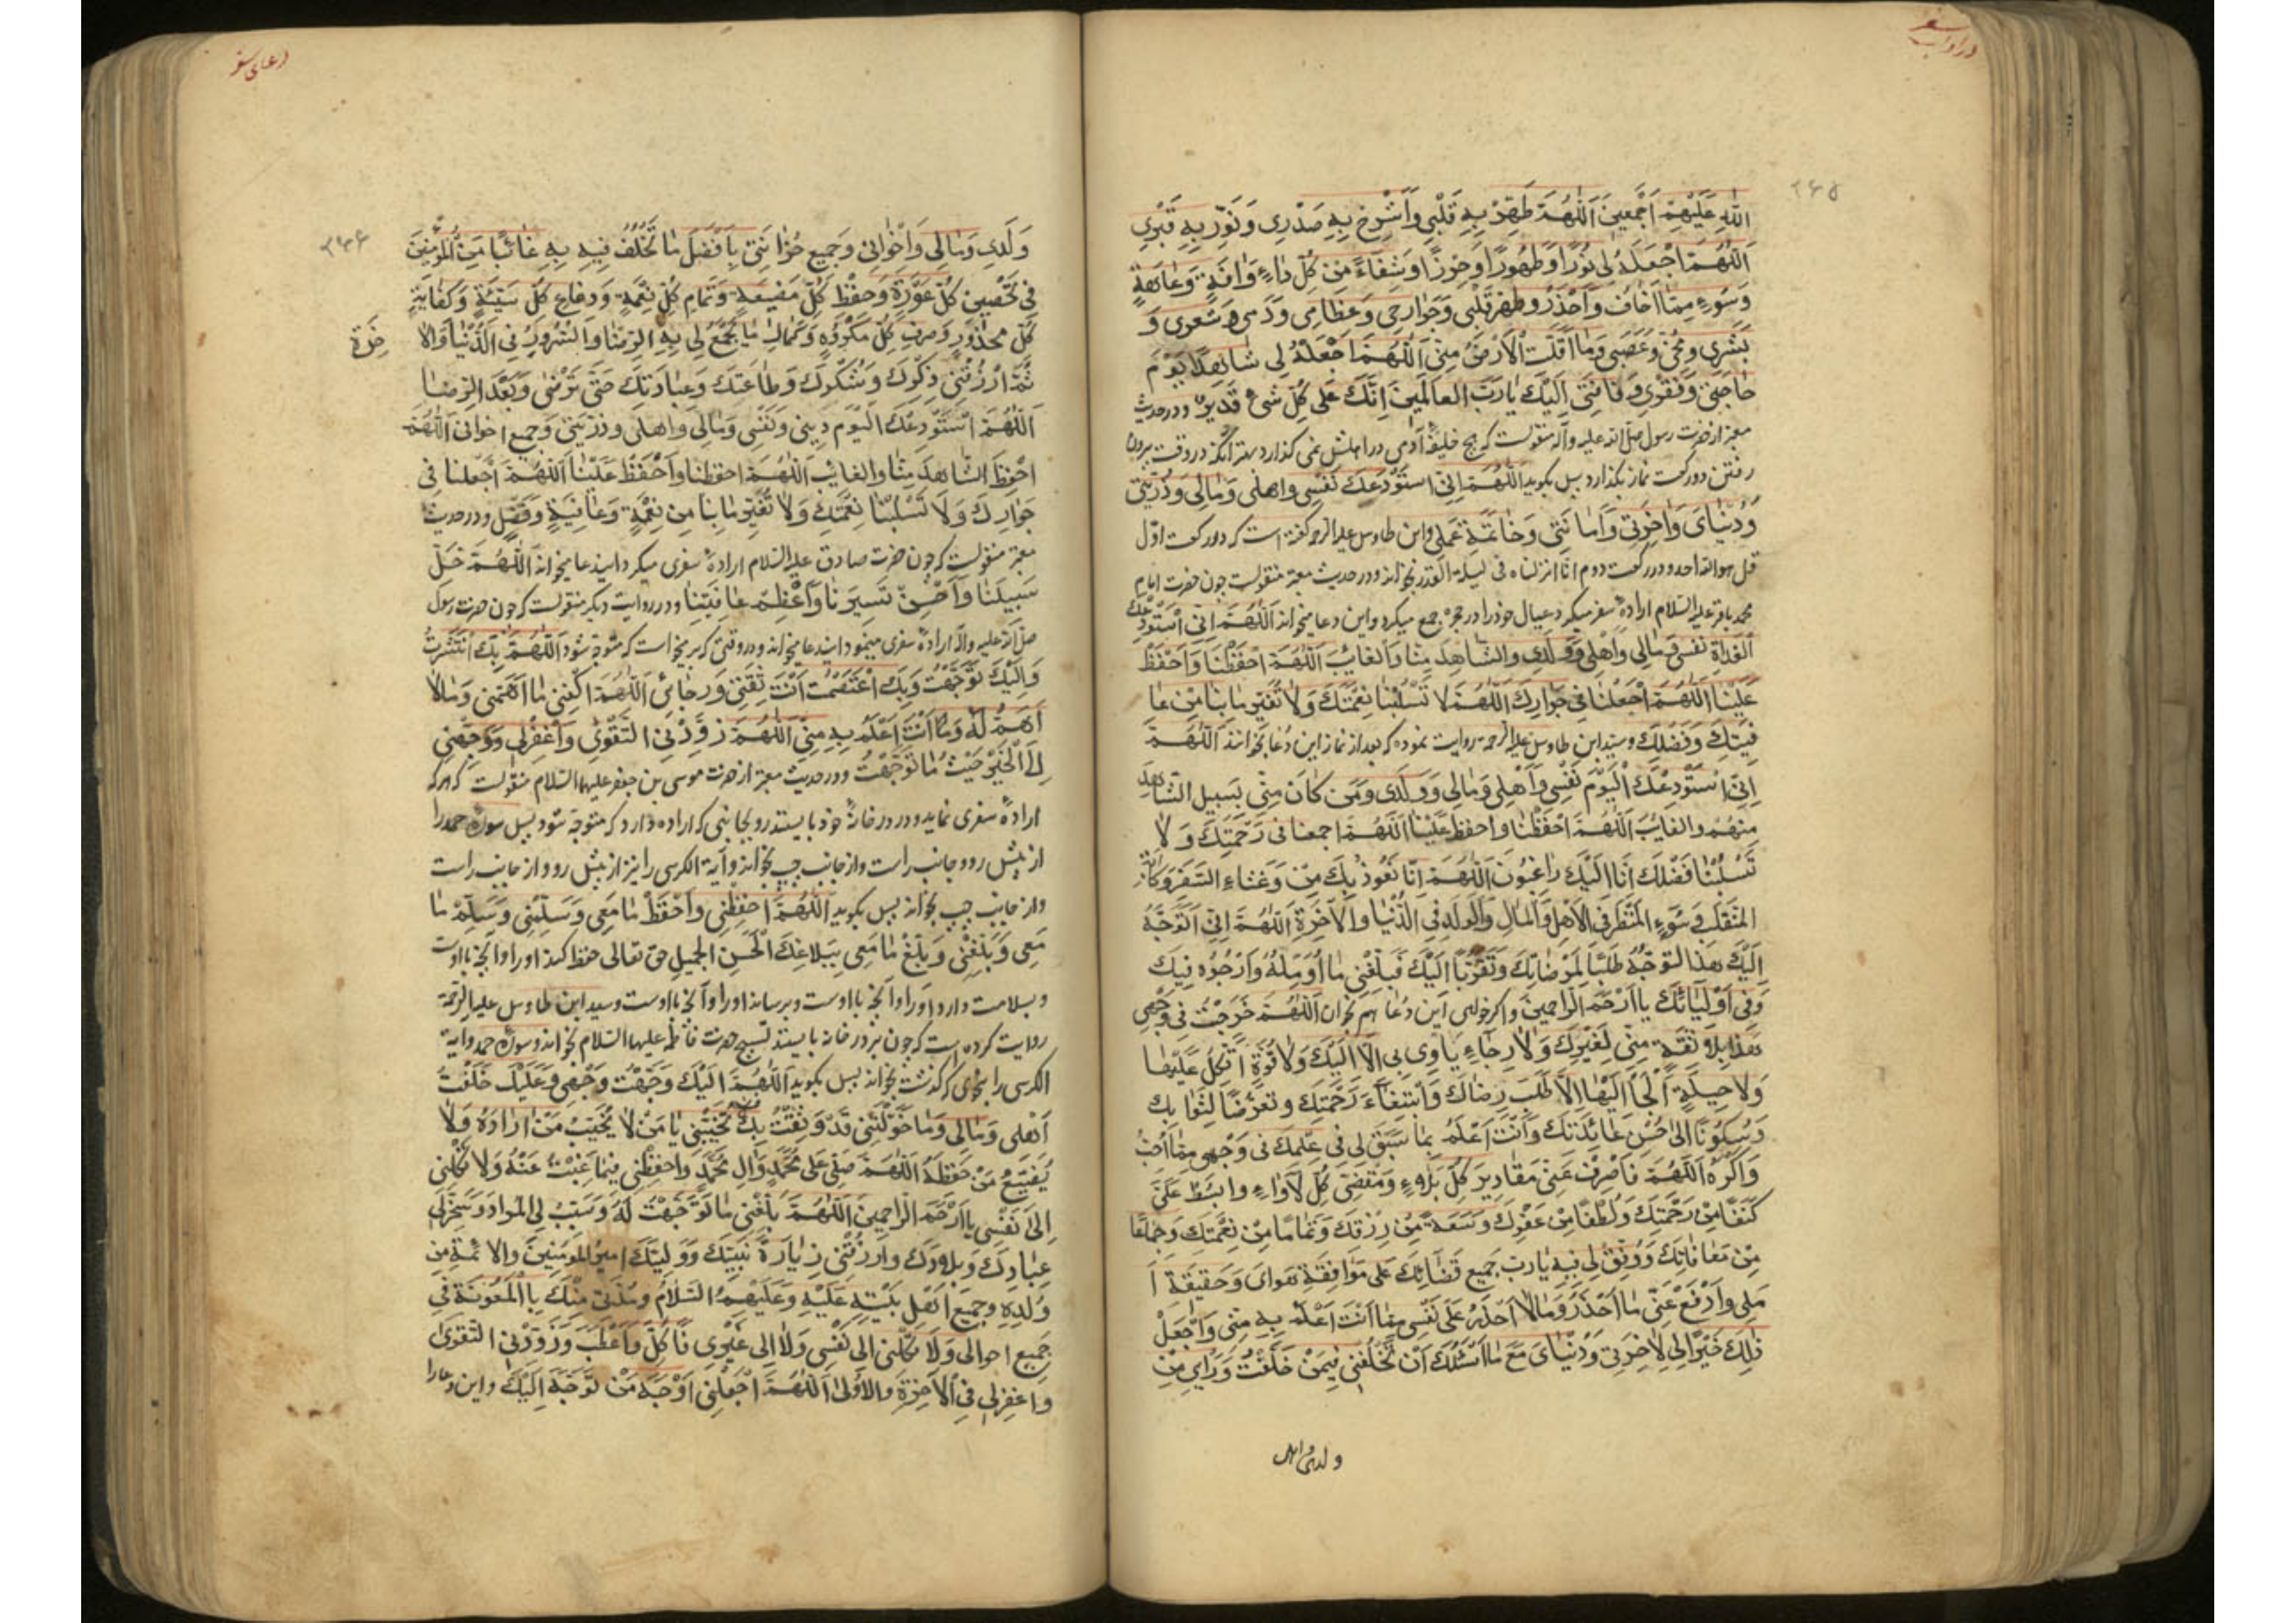 در آداب سفر
۲۶۵
اللهِ عَلَيْهِمْ اَجْمَعينَ اَللّهُمَّ طَهِّرْ بِهِ قَلْبي وَاَشْرِحْ بِهِ صَدْرِي وَنَوِّرْ بِهِ قَبْرِي
اَللّهُمَّ اجْعَلْهُ لي نُورًا وَطَهُورًا وَحِرْزًا وَشِفَاءً مِنْ كُلِّ دَاءٍ وَافَةٍ وَعَاهَةٍ
وَسُوءٍ مِمَّا اَخَافُ وَاَحْذَرُ وطهر قَلْبي وَجَوارِحي وَعِظَامي وَدَمي وَشَعري وَ
بَشَري وَمُخّي وَعَصَبي وَما اَقَلَّتِ الْاَرْضُ مِنّي اَللّهُمَّ اجْعَلْهُ لي شاهِدًا يَوْمَ
حَاجَتي وَفَقْرِي وَفَاقَتي اِلَيْكَ يارَبَّ العالَمينَ اِنَّكَ عَلى كُلِّ شَئٍ قَديرٌ ودر حديث
معتبر از حضرت رسول صلى الله عليه وآله منقولست كه هيچ خليفۀ آدمى در اهلش نمى گذارد بهتر از آنكه در وقت بيرون
رفتن دو ركعت نماز بگذارد پس بگويد اَللّهُمَّ اِنّي اَستَوْدِعُكَ نَفْسي واهلي وَمَالي وَذُرِّيَتي
وَدُنْيَايَ وَاخِرَتي وَاَمانَتي وَخَاتِمَةَ عَمَلي وابن طاوس عليه الرحمه گفته است كه در ركعت اوّل
قل هو الله احد و در ركعت دوم انّا انزلناه فى ليلة القدر بخواند ودر حديث معتبر منقولست چون حضرت امام
محمد باقر عليه السّلام ارادۀ سفر ميكرد عيال خود را در حجره جمع ميكرد و اين دعا ميخواند اَللّهُمَّ اِنّي اَسْتَوْدِعُكَ
الْغَداةَ نفسي وَمَالي وَاَهْلي وَوَلَدي والشاهِدَ مِنّا وَالغائِبَ اَللّهُمَّ احْفَظْنَا وَاحْفَظْ
عَلَيْنَا اَللّهُمَّ اجْعَلْنَا في جِوارِكَ اَللّهُمَّ لا تَسْلُبْنا نِعْمَتَكَ وَلا تُغَيِّرْ مابنا مِنْ عا
فِيَتِكَ وَفَضْلِكَ وسيّد ابن طاوس عليه الرحمه روايت نموده كه بعد از نماز اين دُعا بخوانند اَللّهُمَّ
اِنّي اَسْتَوْدِعُكَ الْيَوْمَ نَفْسي وَاَهْلي وَمَالي وَوَلَدي وَمَن كانَ مِنّي بِسَبيل الشّاهِدَ
مِنهُم والغائِبَ اَللّهُمَّ احْفَظْنا واحفظ عَلَيْنا اَللّهُمَّ اجمعنا في رَحْمَتِكَ وَلا
تَسْلُبْنا فَضْلَكَ اِنّا اِلَيْكَ راغِبُونَ اَللّهُمَّ اِنّا نَعُوذُ بِكَ مِنْ وَعْثاءِ السَّفَرِ وَكآبَةِ
المُنْقَلَبِ وَسُوءِ المَنْظَرِ في الاَهْلِ وَالْمَالِ وَالْوَلَدِ في الدُّنْيا وَالْاخِرَةِ اَللّهُمَّ اِنّي اَتَوَجَّهُ
اِلَيْكَ هذَا التَوَجُّهَ طَلَبًا لِمَرْضاتِكَ وَتَقَرُّبًا اِلَيْكَ فَبَلِّغْني ما اُؤَمِّلُهُ وَاَرْجُوه فيكَ
وَفي اَوْلِيائِكَ يا اَرْحَمَ الرّاحِمينَ واگر خواهى اين دُعا هم بخوان اَللّهُمَّ خَرَجْتُ في وَجْهي
هذا بِلا ثِقَةٍ مِنّي لِغَيْرِكَ وَلا رِجاءٍ يَأوي بي اِلّا اِلَيْكَ وَلا قُوَّةٍ اَتَّكِلُ عَلَيْها
وَلا حيلَةٍ اَلْجَأُ اِلَيْها اِلّا طَلَبَ رِضاكَ وَابْتِغاءَ رَحْمَتِكَ وتعَرُّضًا لِثَوابِك
وَسُكُونًا اِلى حُسْنِ عَائِدَتِكَ وَاَنْتَ اَعْلَمُ بِما سَبَقَ لي في عِلْمِكَ في وَجْهي مِمّا اُحِبُّ
وَاَكْرَهُ اَللّهُمَّ فَاصْرِفْ عَنّي مَقاديرَ كُلِّ بَلاءٍ وَمَقْضِيَّ كُلِّ لَأواءٍ وابْسُطْ عَلَيَّ
كَنَفًا مِنْ رَحْمَتِكَ وَلُطْفًا مِنْ عَفْوِكَ وَسَعَةً مِنْ رِزْقِكَ وَتَمَامًا مِنْ نِعْمَتِكَ وَجِمَاعًا
مِنْ مُعافاتِكَ وَوَفِّقْ لي فيهِ يارَبِّ جَميعَ قَضائِكَ عَلى مُوافَقَةِ هَوايَ وَحَقيقَةِ اَ
مَلي وَادْفَعْ عَنّي ما اَحْذَرُ وَمَالا اَحْذَرُ عَلى نَفْسي مِمّا اَنْتَ اَعْلَمُ بِهِ مِنّي وَاجْعَلْ
ذلِكَ خَيْرًا لي لِاخِرَتي وَدُنْيايَ مَعَ ما اَسْئَلُكَ اَنْ تَخْلُفَني فيمَنْ خَلَّفْتُ وَرَائي مِنْ
دعاى سفر
۲۶۶
وَلَدي وَمَالي وَاِخْواني وَجَميعِ حُزانَتي بِاَفْضَلِ ما تَخْلُفُ فيهِ بِهِ غائِبًا مِنَ المُؤْمِنينَ
في تَحْصينِ كُلِّ عَوْرَةٍ وَحِفْظِ كُلِّ مَضيعَةٍ وَتَمامِ كُلِّ نِعْمَةٍ وَدِفاعِ كُلِّ سَيِّئَةٍ وَكِفَايَةِ
كُلِّ مَحْذُورٍ وَصَرْفِ كُلِّ مَكْرُوهٍ وَكَمالِ ما يَجْمَعُ لي بِهِ الرِّضا وَالسُّرُورَ في الدُّنْيا وَالا
خِرَةِ
ثُمَّ ارْزُقْني ذِكْرَكَ وَشُكْرَكَ وَطاعَتَكَ وَعِبادَتَكَ حَتّى تَرْضى وَبَعْدَ الرِّضا
اَللّهُمَّ اَسْتَوْدِعُكَ الْيَوْمَ ديني وَنَفْسي وَمَالي وَاهلي وذرّيَتي وَجميع اخواني اَللّهُمَّ
احْفَظِ الشّاهِدَ مِنّا والغائِبَ اَللّهُمَّ احفظنا وَاحْفَظْ عَلَيْنا اَللّهُمَّ اجْعَلنا في
جِوارِكَ وَلا تَسْلُبْنا نِعْمَتَكَ وَلا تُغَيِّرْ ما بِنا مِنْ نِعْمَةٍ وَعافِيَةٍ وَفَضْلٍ ودر حديث
معتبر منقولست كه چون حضرت صادق عليه السّلام ارادۀ سفرى ميكرد اين دعا ميخواند اَللّهُمَّ خَلِّ
سَبيلَنا وَاَحْسِنْ تَسييرَنا وَاَعْظِمْ عافِيَتَنا ودر روايت ديگر منقولست كه چون حضرت رسول
صلى الله عليه وآله ارادۀ سفرى مينمود اين دعا ميخواند و در وقتى كه برميخواست كه متوجّه شود اَللّهُمَّ بِكَ انْتَشَرْتُ
وَاِلَيْكَ تَوَجَّهْتُ وَبِكَ اعْتَصَمْتُ اَنْتَ ثِقَتي وَرَجائي اَللّهُمَّ اكْفِني ما اَهَمَّني وَمَالا
اَهَمُّ لَهُ وَما اَنْتَ اَعْلَمُ بِهِ مِنّي اَللّهُمَّ زَوِّدْني التَّقْوى وَاغْفِرْلي وَوَجِّهْني
اِلَى الْخَيْرِ حَيْثُ ما تَوَجَّهْتُ ودر حديث معتبر از حضرت موسى بن جعفر عليهما السّلام منقولست كه هر كه
ارادۀ سفرى نمايد و در در خانۀ خود بايستد رو بجانبى كه اراده دارد كه متوجّه شود پس سورۀ حمد را
از پيش رو و جانب راست و از جانب چپ بخواند و آية الكرسى را نيز از پيش رو و از جانب راست
و از جانب چپ بخواند پس بگويد اَللّهُمَّ احْفَظْني وَاحْفَظْ ما مَعي وَسَلِّمْني وَسَلِّمْ ما
مَعي وَبَلِّغْني وَبَلِّغْ ما مَعي بِبَلاغِكَ الْحَسَنِ الجميل حق تعالى حفظ كند او را و آنچه با اوست
و بسلامت دارد او را و آنچه با اوست و برساند او را و آنچه با اوست وسيد ابن طاوس عليه الرّحمة
روايت كرده است كه چون بر در خانه بايستد تسبيح حضرت فاطمه عليها السّلام بخواند و سورۀ حمد و آية
الكرسى را بنحوى كه گذشت بخواند پس بگويد اَللّهُمَّ اِلَيْكَ وَجَّهْتُ وَجْهي وَعَلَيْكَ خَلَّفْتُ
اَهْلي وَمَالي وَما خَوَّلْتَني قَدْ وَثِقْتُ بِكَ فلا تُخَيِّبْني يا مَنْ لا يُخَيِّبُ مَنْ اَرادَهُ وَلا
يُضَيِّعُ مَنْ حَفِظَهُ اَللّهُمَّ صَلِّ عَلى مُحَمَّدٍ وَالِ مُحَمَّدٍ وَاحفِظْني فيما غِبْتُ عَنْهُ وَلا تَكِلْني
اِلى نَفْسي يا اَرْحَمَ الرّاحِمينَ اَللّهُمَّ بَلِّغْني ما تَوَجَّهْتُ لَهُ وَسَبِّبْ لي المُرادَ وَسَخِّرْلي
عِبادَكَ وَبِلادَكَ وَارْزُقْني زِيارَةَ نَبِيِّكَ وَوَلِيِّكَ اَميرِ المُؤمِنينَ وَالا ئمّةِ مِنْ
وُلْدِهِ وَجَميعِ اَهْلِ بَيْتِهِ عَلَيْهِ وَعَلَيْهِمُ السَّلامُ وَمُدَّني مِنْكَ بِالْمَعُونَةِ في
جَميعِ احوالي وَلا تَكِلْني الى نَفْسي وَلا اِلى غَيْري فَاَكِلَّ وَاَعْطَبَ وَزَوِّدْني التَّقْوى
وَاغفِرلي في الْاخِرَةِ وَالاُولى اَللّهُمَّ اجْعَلْني اَوْجَهَ مَنْ تَوَجَّهَ اِلَيْكَ واين دعا را